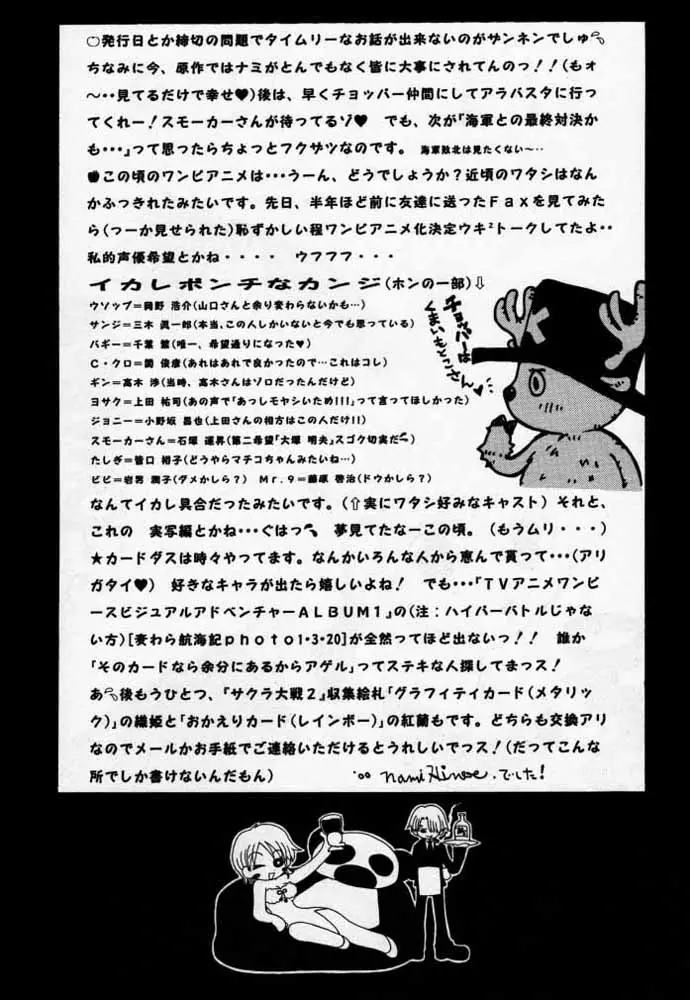 〇発行日とか締切の問題でタイムリーなお話が出来ないのがザンネンでしゅ
ちなみに今、原作ではナミがとんでもなく皆に大事にされてんのっ!!(もォ
～・・見てるだけで幸せ♥)後は、早くチョッパー仲間にしてアラバスタに行っ
てくれー!スモーカーさんが待ってるゾ♥ でも、次が『海軍との最終対決か
も・・・』って思ったらちょっとフクザツなのです。 海軍敗北は見たくない～・・
この頃のワンピアニメは・・・うーん、どうでしょうか?近頃のワタシはなん
かふっきれたみたいです。先日、半年ほど前に友達に送ったFaxを見てみた
ら(つーか見せられた)恥ずかしい程ワンピアニメ化決定ウキ²トークしてたよ・・
私的声優希望とかね・・・・ ウフフフ・・・
イカレポンチなカンジ(ホンの一部)⇩
ウソップ=岡野 浩介(山口さんと余り変わらないかも…)
サンジ=三木 眞一郎(本当、この人しかいないと今でも思っている)
バギー=千葉 繁(唯一、希望通りになった♥)
C・クロ=関 俊彦(あれはあれで良かったので…これはコレ)
ギン=高木 渉(当時、高木さんはゾロだったんだけど)
ヨサク=上田 祐司(あの声で「あっしモヤシいため!!!」って言ってほしかった)
ジョニー=小野坂 昌也(上田さんの相方はこの人だけ!!)
スモーカーさん=石塚 運昇(第二希望「大塚 明夫」スゴク切実だ)
たしぎ=皆口 裕子(どうやらマチコちゃんみたいね…)
ビビ=岩男 潤子(ダメかしら?) Mr.9=藤原 啓治(ドウかしら?)
チョッパーは
くまいもとこさん♥
なんてイカレ具合だったみたいです。(⇧実にワタシ好みなキャスト) それと、
これの 実写編とかね・・・ぐはっ 夢見てたなーこの頃。(もうムリ・・・)
★カードダスは時々やってます。なんかいろんな人から恵んで貰って・・・(アリ
ガタイ♥) 好きなキャラが出たら嬉しいよね! でも・・・「TVアニメワンピ
ースビジュアルアドベンチャーALBUM1」の(注:ハイパーバトルじゃな
い方)[麦わら航海記photo1・3・20]が全然ってほど出ないっ!! 誰か
「そのカードなら余分にあるからアゲル」ってステキな人探してまっス!
あ 後もうひとつ、『サクラ大戦2』収集絵札「グラフィティカード(メタリッ
ク)」の織姫と「おかえりカード(レインボー)」の紅蘭もです。どちらも交換アリ
なのでメールかお手紙でご連絡いただけるとうれしいでっス!(だってこんな
所でしか書けないんだもん)
nami Hirose.でした!